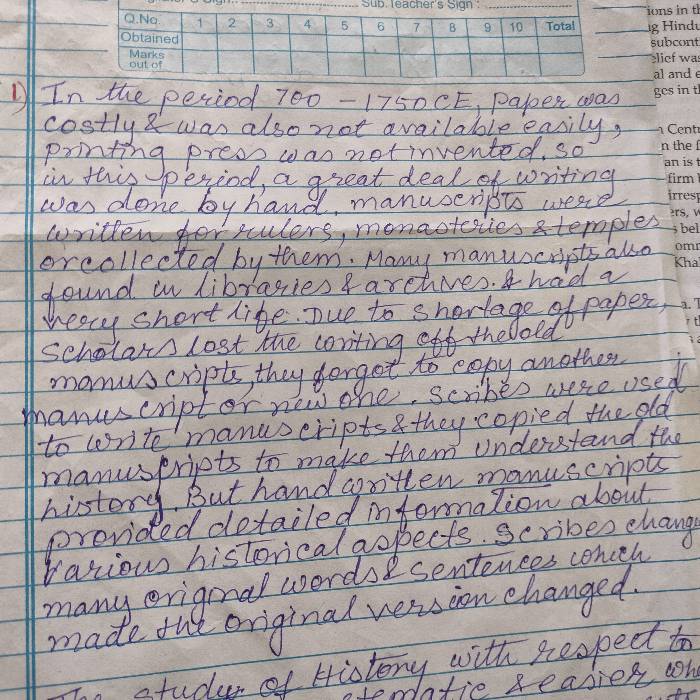 Sub. Teacher's Sign :
Q.No. 1 2 3 4 5 6 7 8 9 10 Total
Obtained
Marks
out of
1) In the period 700 - 1750 CE, paper was
costly & was also not available easily,
printing press was not invented. so
in this period, a great deal of writing
was done by hand. manuscripts were
written for rulers, monasteries & temples
or collected by them. Many manuscripts also
found in libraries & archives. & had a
very short life. Due to shortage of paper,
scholars lost the writing off the old
manuscripts, they forgot to copy another
manuscript or new one. Scribes were used
to write manuscripts & they copied the old
manuscripts to make them understand the
history. But handwritten manuscripts
provided detailed information about
various historical aspects. Scribes chang
many original words & sentences which
made the original version changed.
The study of History with respect to
& easier